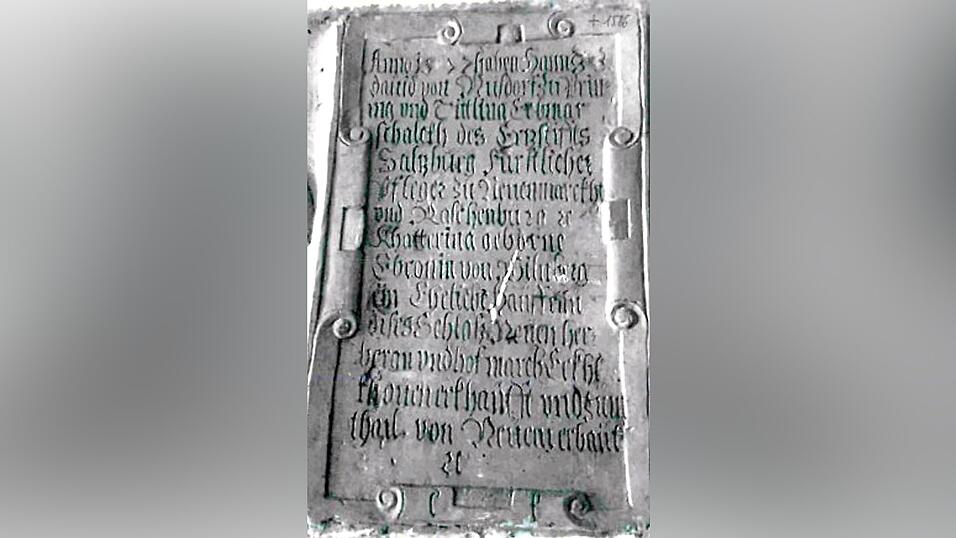 + 1586
Anno 15 77 haben Hanns
Dauid von Nusdorf zu Prün
ing vnd Titling Erbmar
schalckh des Erzstiffts
Salzburg Fürstlicher
Pfleger zu Neuenmarckht
vnd Raschenburg
Khatterina geborne
Ebronin von Wiltberg
ein Eheliche
dises Schlos Neuen her
beron vnd hofmarch
erkhaufft vnd zum
thail von Neuem erbaut